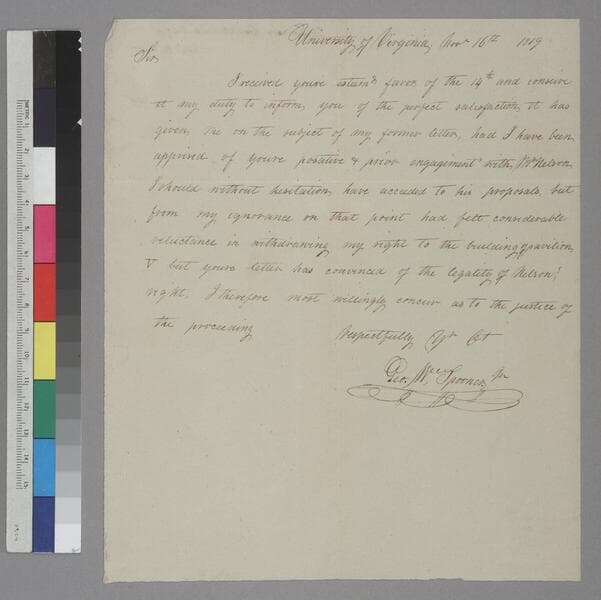 University of Virginia, Novr 16th 1819
Sir,
I received youre esteemd favor of the 14th and conceive
it my duty to inform you of the perfect satisfaction, it has
given, me on the subject of my former letter, had I have been
apprised of youre positive & prior engagement with, Mr Nelson
I should without hesitation, have acceded to his proposals, but
from my ignorance on that point had felt considerable
reluctance in withdrawing my right to the building of pavilion
V but youre letter has convinced of the legality of Nelson's
right, I therefore most willingly concur as to the justice of
the proceeding
Respectfully Yr Ob St
Geo. Wce Spooner, Jr